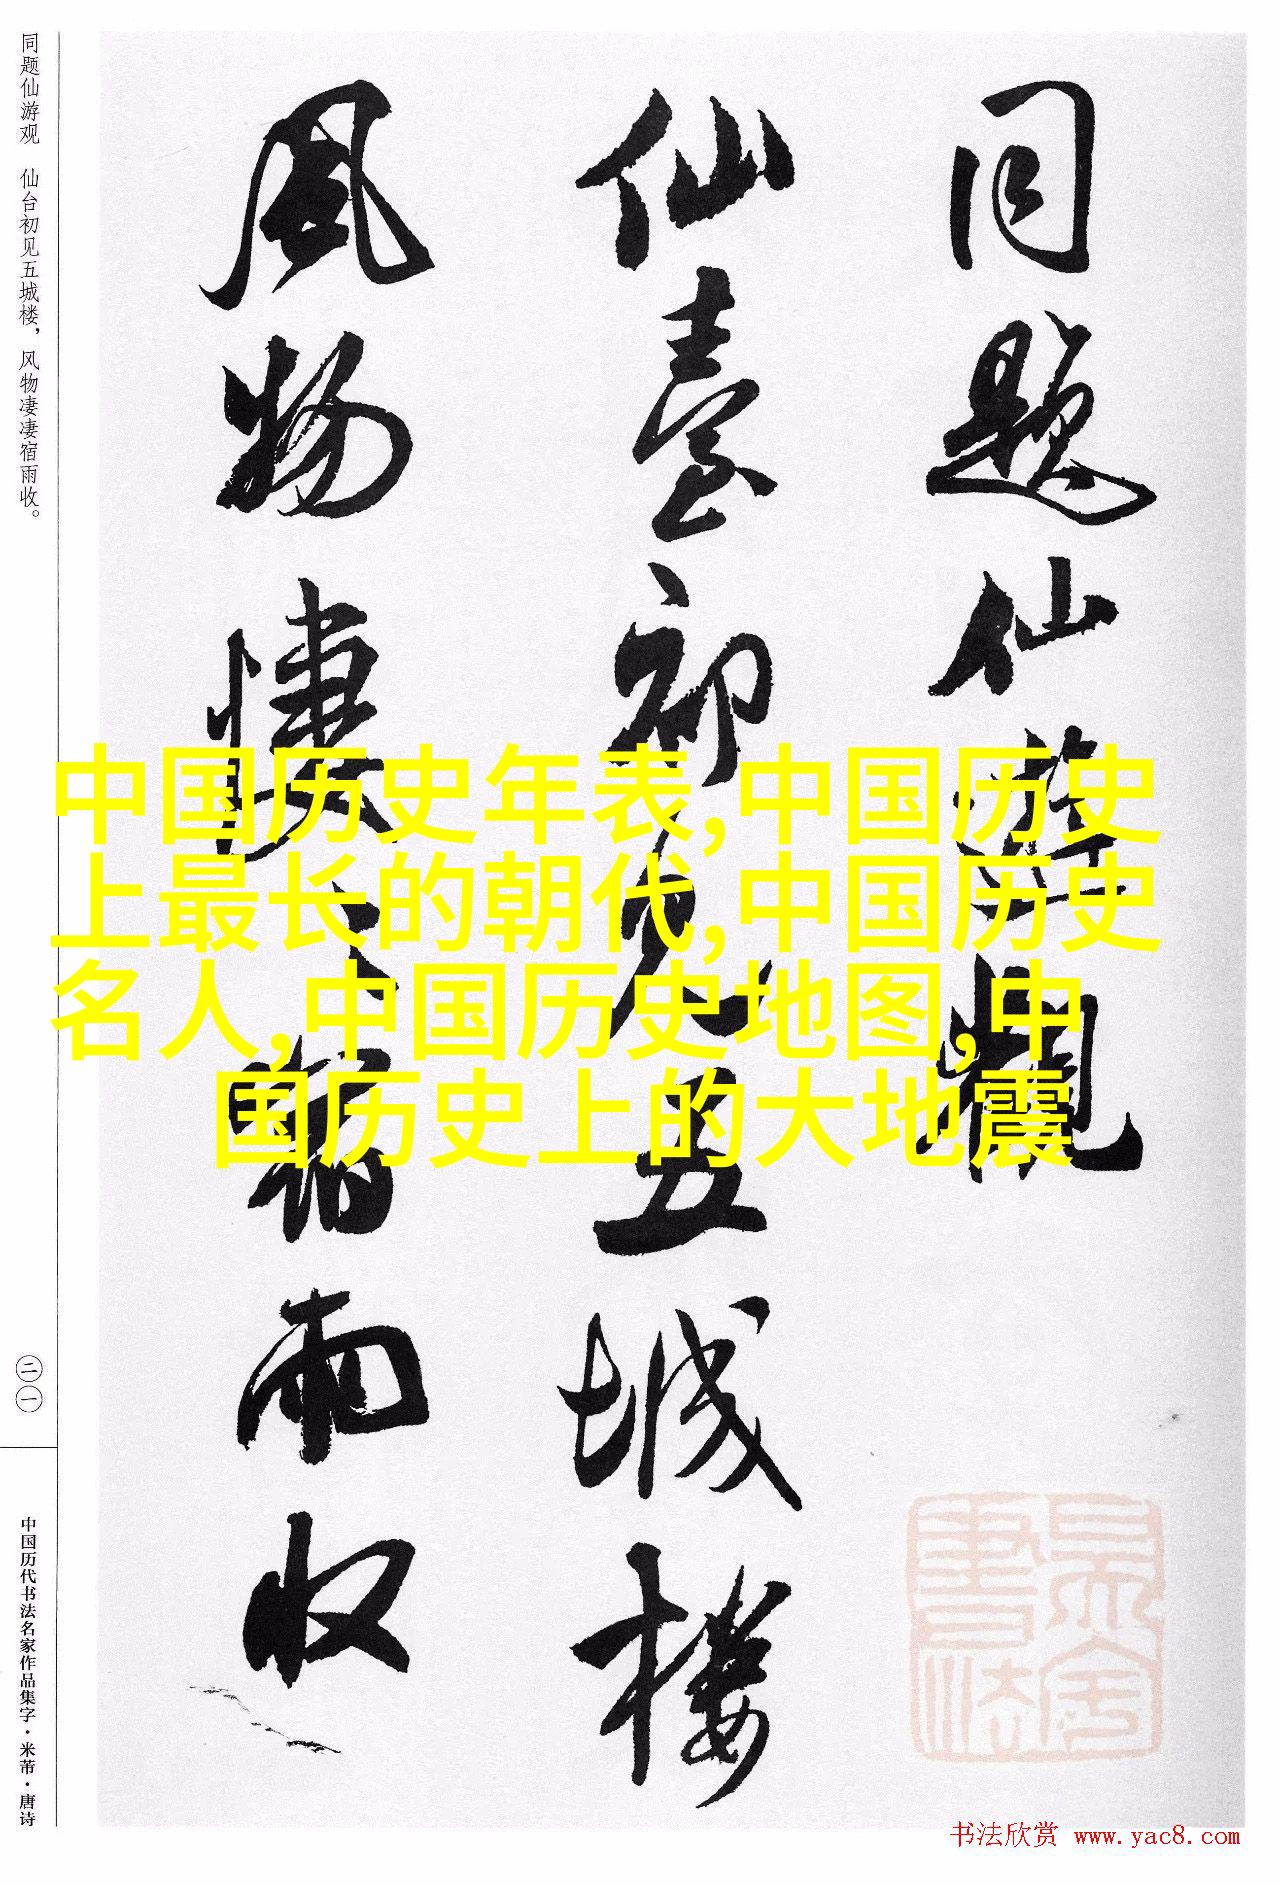 同题仙游观 仙台初见五城楼，风物凄凄宿雨收。
二一
中国历代书法名家作品集字·米芾·唐诗
同题仙游观
仙臺初见五城楼
风物凄〻宿雨收
中国历史年表,中国历史
上最长的朝代,中国历史
名人,中国历史地图,中
国历史上的大地震
书法欣赏 www.yac8.com